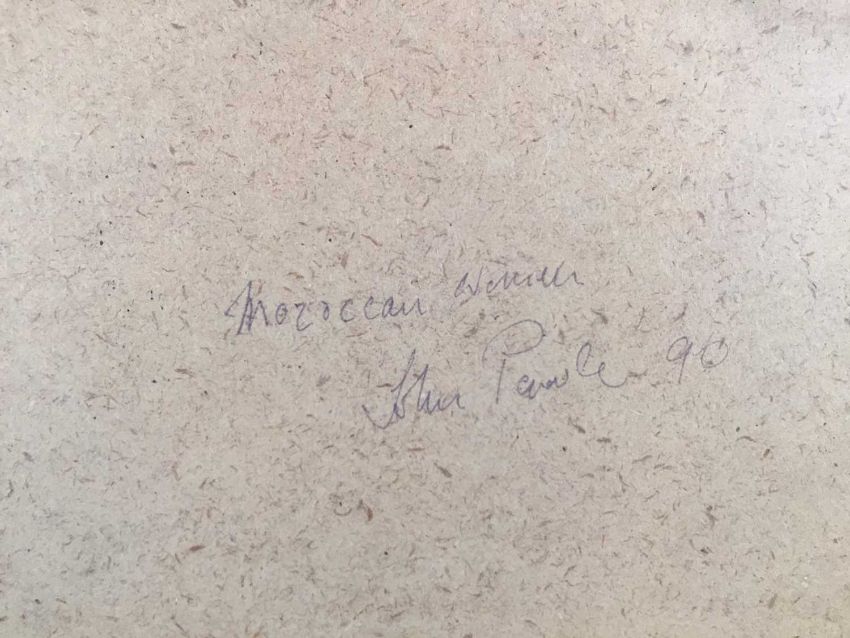 Moroccan women
John 90